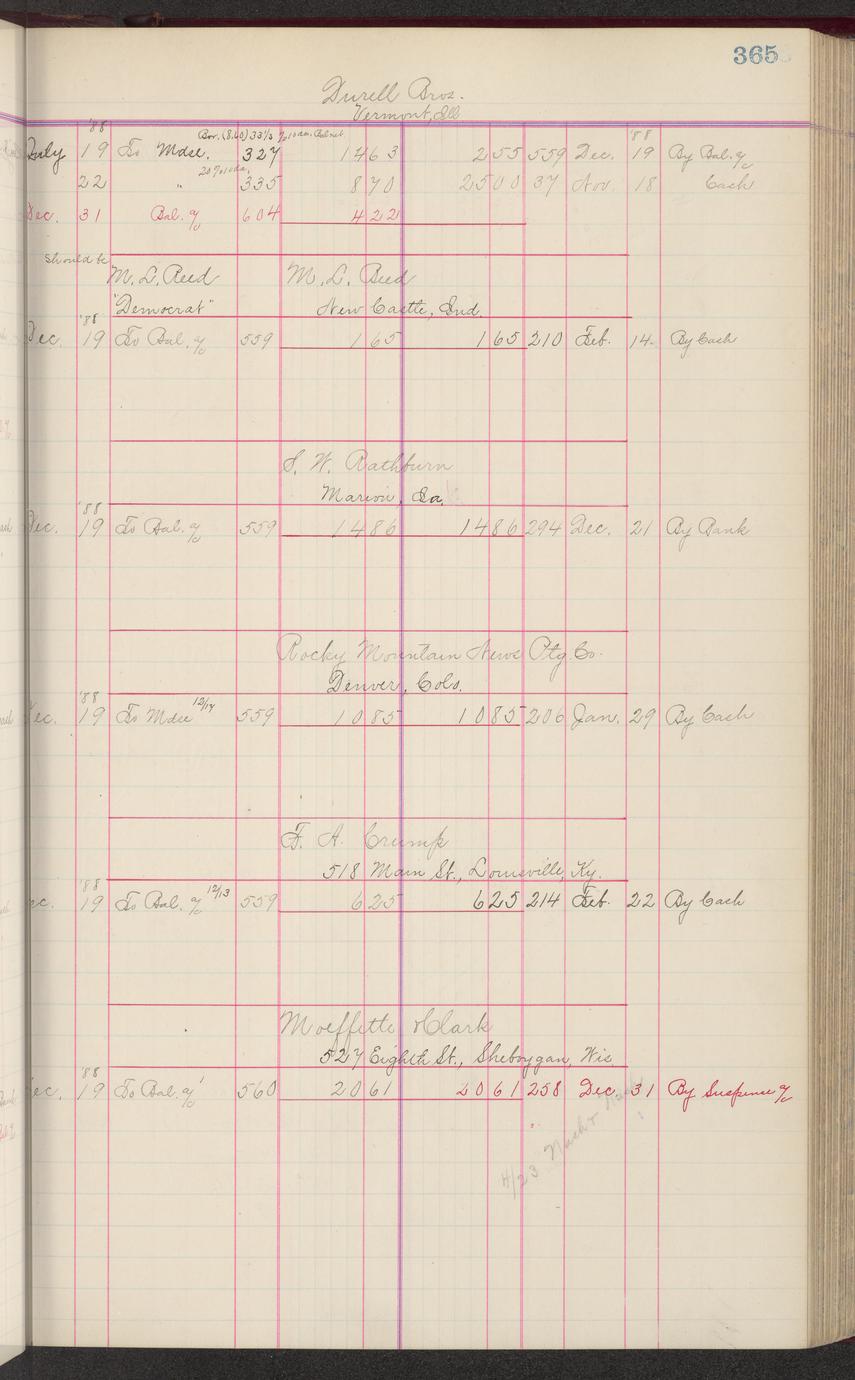 365
Durell Bros.
Vermont, Ill
'88 Bor. (8,60) 33 1/3 % 10 da. '88
July 19 To Mdse. 327 1463 255 559 Dec. 19 By Bal. a/c
20 % 10 da.
22 " 335 870 2500 37 Nov. 18 Cash
Dec. 31 Bal. a/c 604 422
should be
M. L. Reed M. L. Beed
"Democrat" New Castle, Ind.
'88
Dec. 19 To Bal. a/c 559 165 165 210 Feb. 14. By Cash
S. W. Rathburn
Marion, Ia.
'88
Dec. 19 To Bal. a/c 559 1486 1486 294 Dec. 21 By Bank
Rocky Mountain News Ptg. Co.
Denver, Colo.
'88
Dec. 19 To Mdse 12/17 559 1085 1085 206 Jan. 29 By Cash
F. A. Crump
518 Main St., Louisville, Ky.
'88
ec. 19 To Bal. a/c 12/13 559 625 625 214 Feb. 22 By Cash
Moeffette & Clark
527 Eighth St., Sheboygan, Wis.
'88
Dec. 19 To Bal. a/c 560 2061 2061 258 Dec. 31 By Suspense a/c
4/23 Nash &